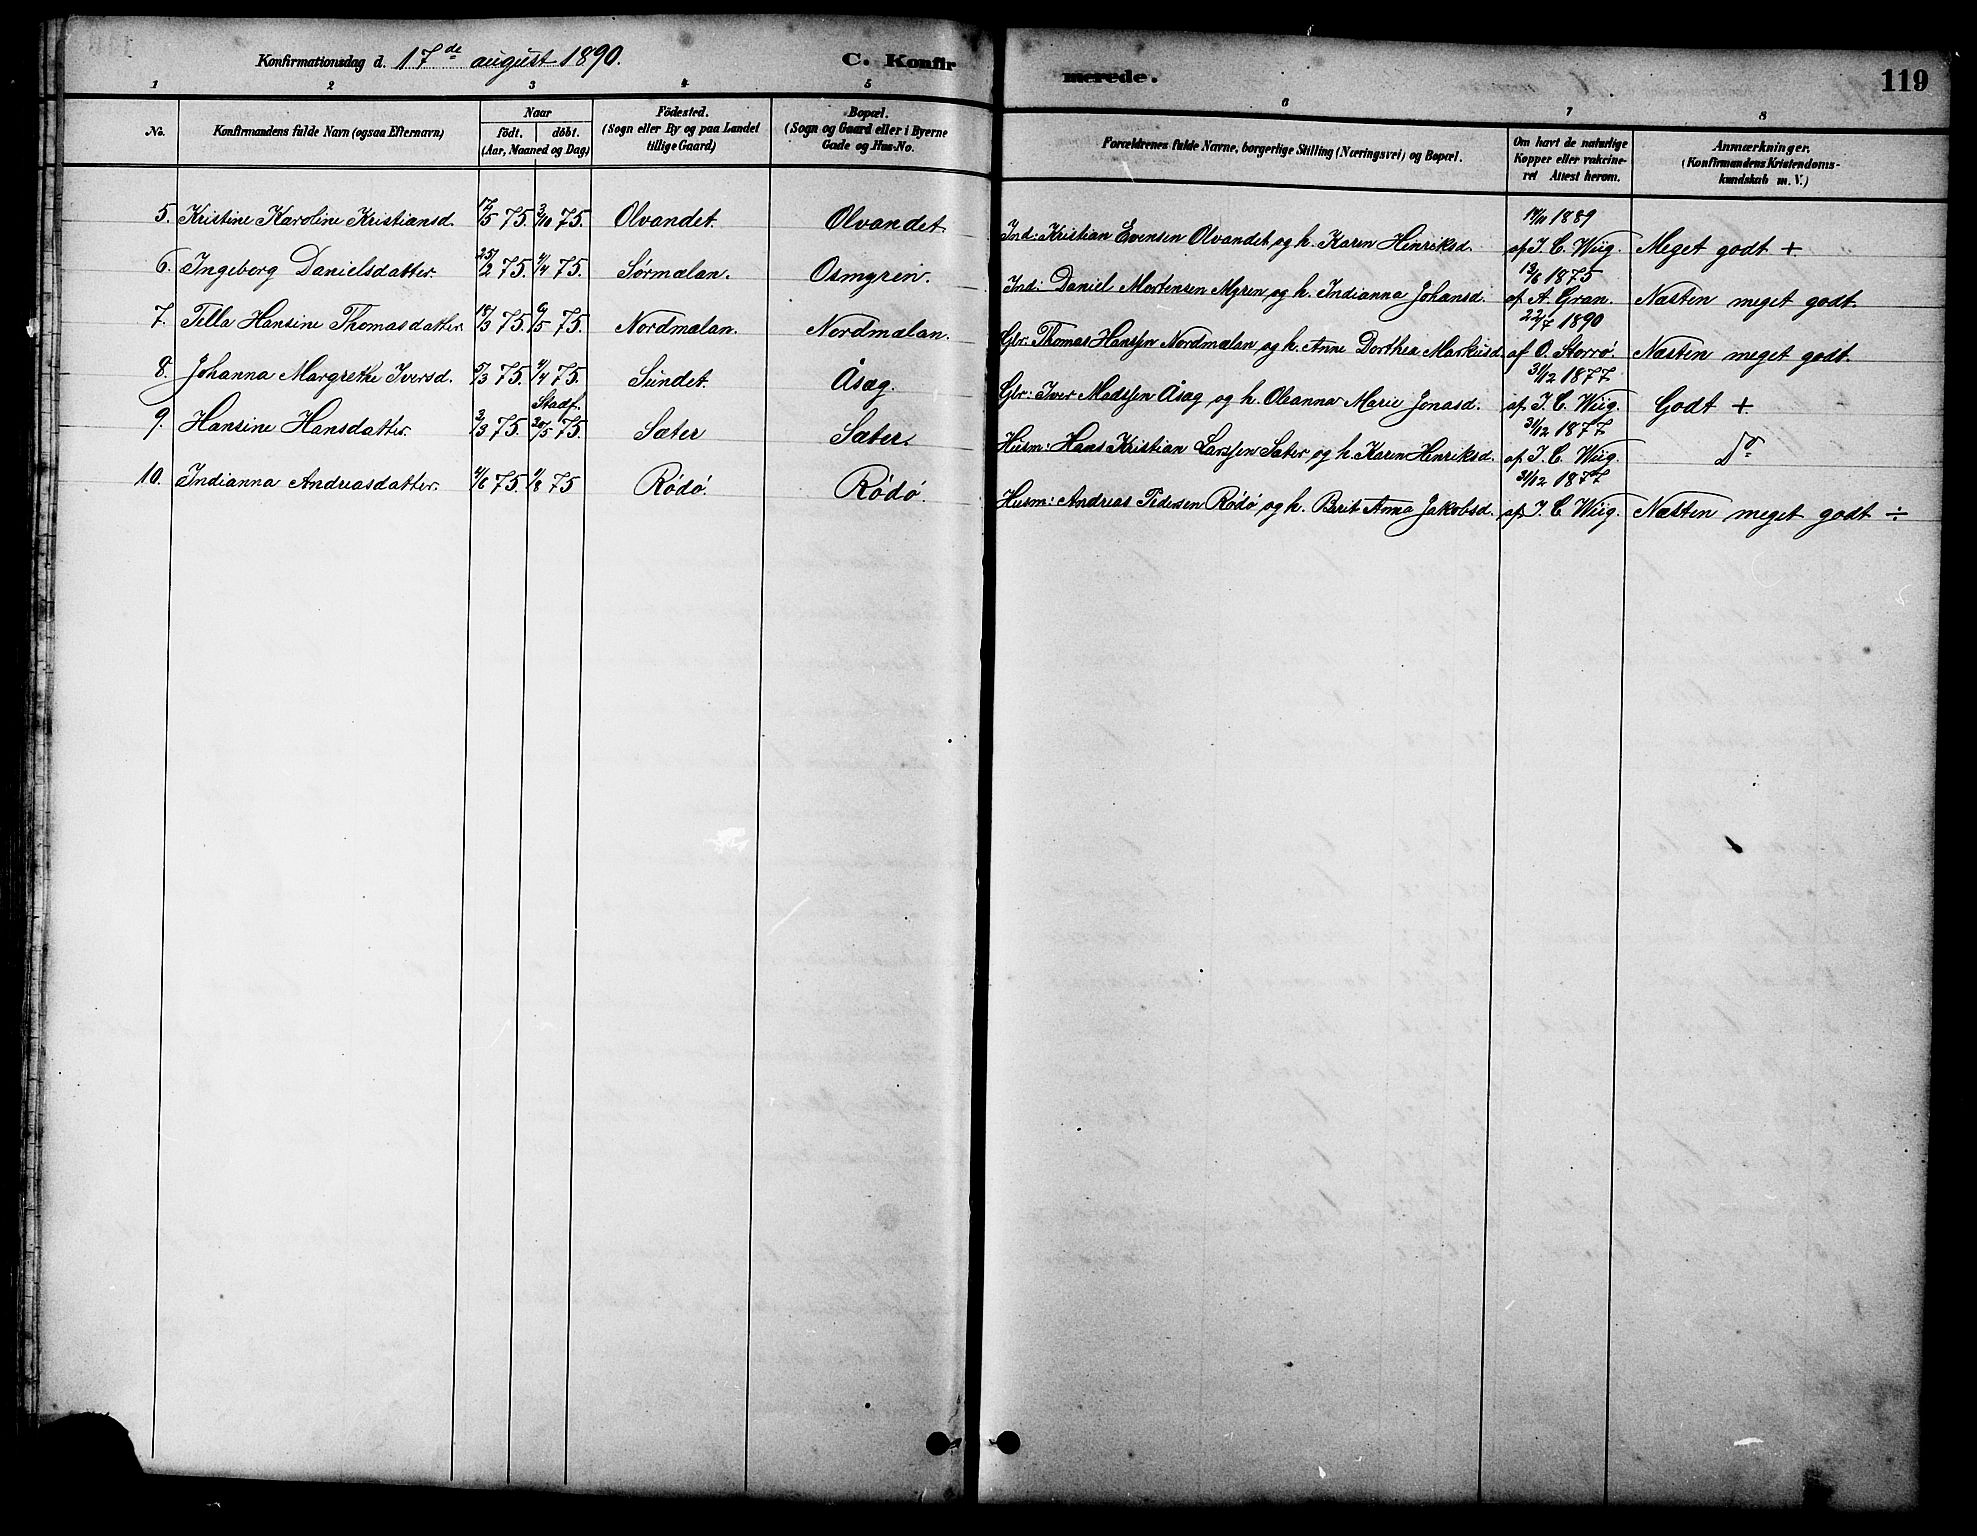 Konfirmationsdag d. 17de august 1890.
C. Konfirmerede.
119
1 2 3 4 5 6 7 8
No.
Konfirmandens fulde Navn (ogsaa Efternavn)
Naar
födt. döbt.
(Aar, Maaned og Dag)
Födested.
(Sogn eller By og paa Landet
tillige Gaard)
Bopæl.
(Sogn og Gaard eller i Byerne
Gade og Hus-No.
Forældrenes fulde Navne, borgerlige Stilling (Næringsvei) og Bopæl.
Om havt de naturlige
Kopper eller vakcine-
ret Attest herom.
Anmærkninger.
(Konfirmandens Kristendoms-
kundskab m. V.)
5. Kristine Karoline Kristiansd. 17/5 75. 3/10 75. Olvandet. Olvandet. Ind: Kristian Evensen Olvandet og h. Karen Henriksd. 1889 af J. C. Wiig. Meget godt +
6. Ingeborg Danielsdatter. 25/2 75. 4/4 75. Sørmælan. Osmyren. Ind: Daniel Mortensen Myren og h. Indianna Johansd. 12/6 1875 af A. Gran. Næsten meget godt.
7. Tella Hansine Thomasdatter. 18/3 75. 6/5 75. Nordmælan. Nordmælan. Gbr: Thomas Hanssen Nordmælan og h. Anne Dorthea Markusd. 22/7 1890 af O. Storrø. Næsten meget godt.
8. Johanna Margrethe Iversd. 75. 4/4 75. Sundet. Åsæg. Gbr: Iver Madssen Åsag og h. Oleanna Marie Jonasd. 31/12 1877 af J. C. Wiig. Godt +
9. Hansine Hansdatter. 3/3 75. Stadf. 20/5 75. Sæter Sæter. Husm: Hans Kristian Larssen Sæter og h. Karen Henriksd. 31/12 1877 af J. C. Wiig. Do
10. Indianna Andreasdatter. 4/6 75. 1/8 75 Rödö. Rödö. Husm: Andreas Pedersen Rödö og h. Berit Anna Jakobsd. 31/12 1877 af J. C. Wiig. Næsten meget godt ÷